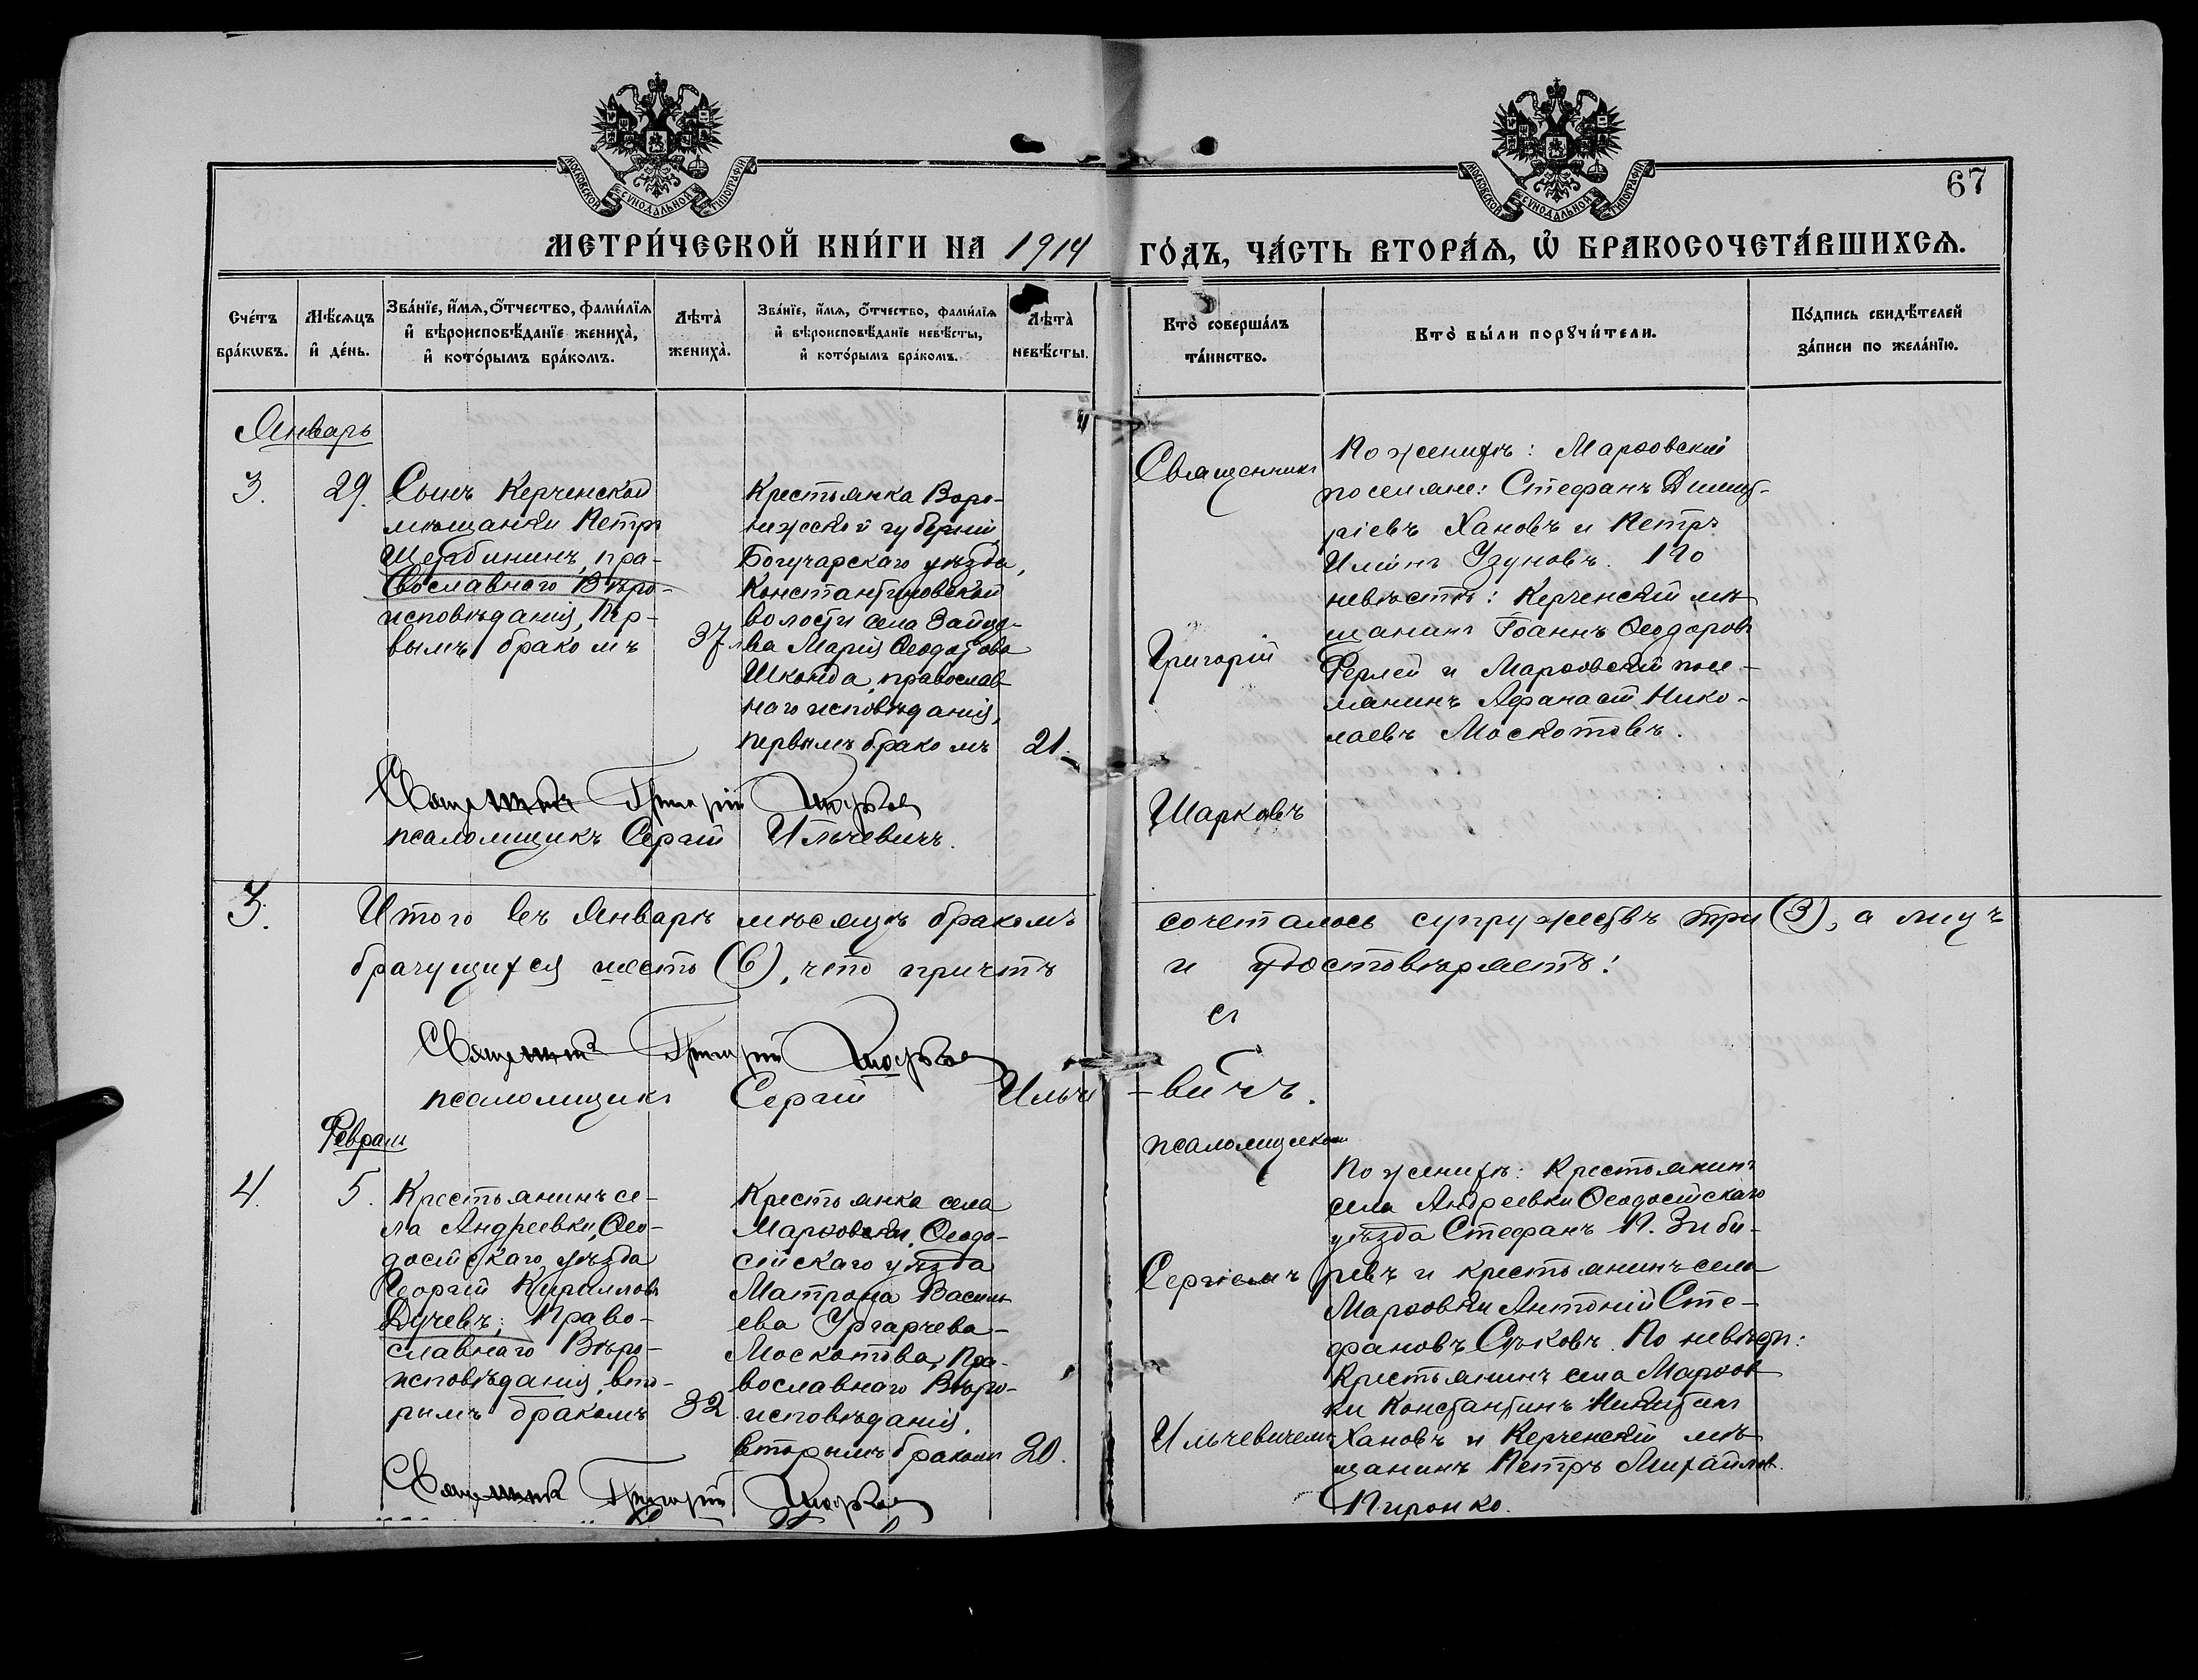 МОСКОВСКОЙ СѴНОДАЛЬНОЙ ТИПОГРАФІИ
МОСКОВСКОЙ СѴНОДАЛЬНОЙ ТИПОГРАФІИ
67
МЕТРИ́ЧЕСКОЙ КНИ́ГИ НА 1914 ГО́ДЪ, ЧА́СТЬ ВТОРА́Ѧ, Ѡ҆ БРАКОСОЧЕТА́ВШИХСѦ.
Сче́тъ
бра́кѡвъ.
Мѣ́сѧцъ
и҆ де́нь.
Зва́нїе, и҆́мѧ, ѻ҆́тчество, фами́лїѧ
и҆ вѣроисповѣ́данїе жениха̀,
и҆ кото́рымъ бра́комъ.
Лѣта̀
жениха̀.
Зва́нїе, и҆́мѧ, ѻ҆́тчество, фами́лїѧ
и҆ вѣроисповѣ́данїе невѣ́сты,
и҆ кото́рымъ бра́комъ.
Лѣта̀
невѣ́сты.
Кто̀ соверша́лъ
та́инство.
Кто̀ бы́ли порꙋчи́тели.
По́дпись свидѣ́телей
за́писи по жела́нїю.
Январь
3.
29.
Сынъ Керченской
мѣщанки Петръ
Щербининъ, пра-
вославнаго Вѣро-
исповѣданія, пер-
вымъ бракомъ
37
Крестьянка Воро-
нежской губерніи
Богучарскаго уѣзда,
Константиновской
волости села
Марія Ѳеодотова
Шконда, православ-
наго исповѣданія,
первымъ бракомъ
21.
Священникъ
Григорій
Шарковъ
По женихѣ: Марѳовскій
поселяне: Стефанъ Димит-
ріевъ Хановъ и Петръ
Илiинъ Узуновъ. По
невѣстѣ: Керченскій мѣ-
щанинъ Іоаннъ Ѳеодоровъ
Ферлей и Марѳовскій посе-
лянинъ Афанасій Нико-
лаевъ Москотовъ.
Священникъ Григорій Шарковъ
псаломщикъ Сергій Ильчевичъ.
3.
Итого въ Январѣ мѣсяцѣ бракомъ сочеталось супружествъ три (3), а лицъ
брачущихся шесть (6), что причтъ и удостовѣряетъ:
Священникъ Григорій Шарковъ
псаломщикъ Сергій Ильче-вичъ.
Февраль
4.
5.
Крестьянинъ се-
ла Андреевки, Ѳео-
досійскаго уѣзда
Георгій Кирилловъ
Дучевъ, Право-
славнаго Вѣро-
исповѣданія, вто-
рымъ бракомъ
32
Крестьянка села
Марѳовки, Ѳеодо-
сійскаго уѣзда
Матрона Василь-
ева Ургарчева-
Москотова, Пра-
вославнаго Вѣро-
исповѣданія,
вторымъ бракомъ
20.
съ
псаломщикомъ
Сергіемъ
Ильчевичемъ
По женихѣ: Крестьянинъ
села Андреевки Ѳеодосійскаго
уѣзда Стефанъ П. Зиби-
ревъ и крестьянинъ села
Марѳовки Антоній Сте-
фановъ Сѣковъ. По невѣстѣ:
Крестьянинъ села Марѳов-
ки Константинъ Никитинъ
Хановъ и Керченскій мѣ-
щанинъ Петръ Михайлов.
Пиронко.
Священникъ Григорій Шарковъ